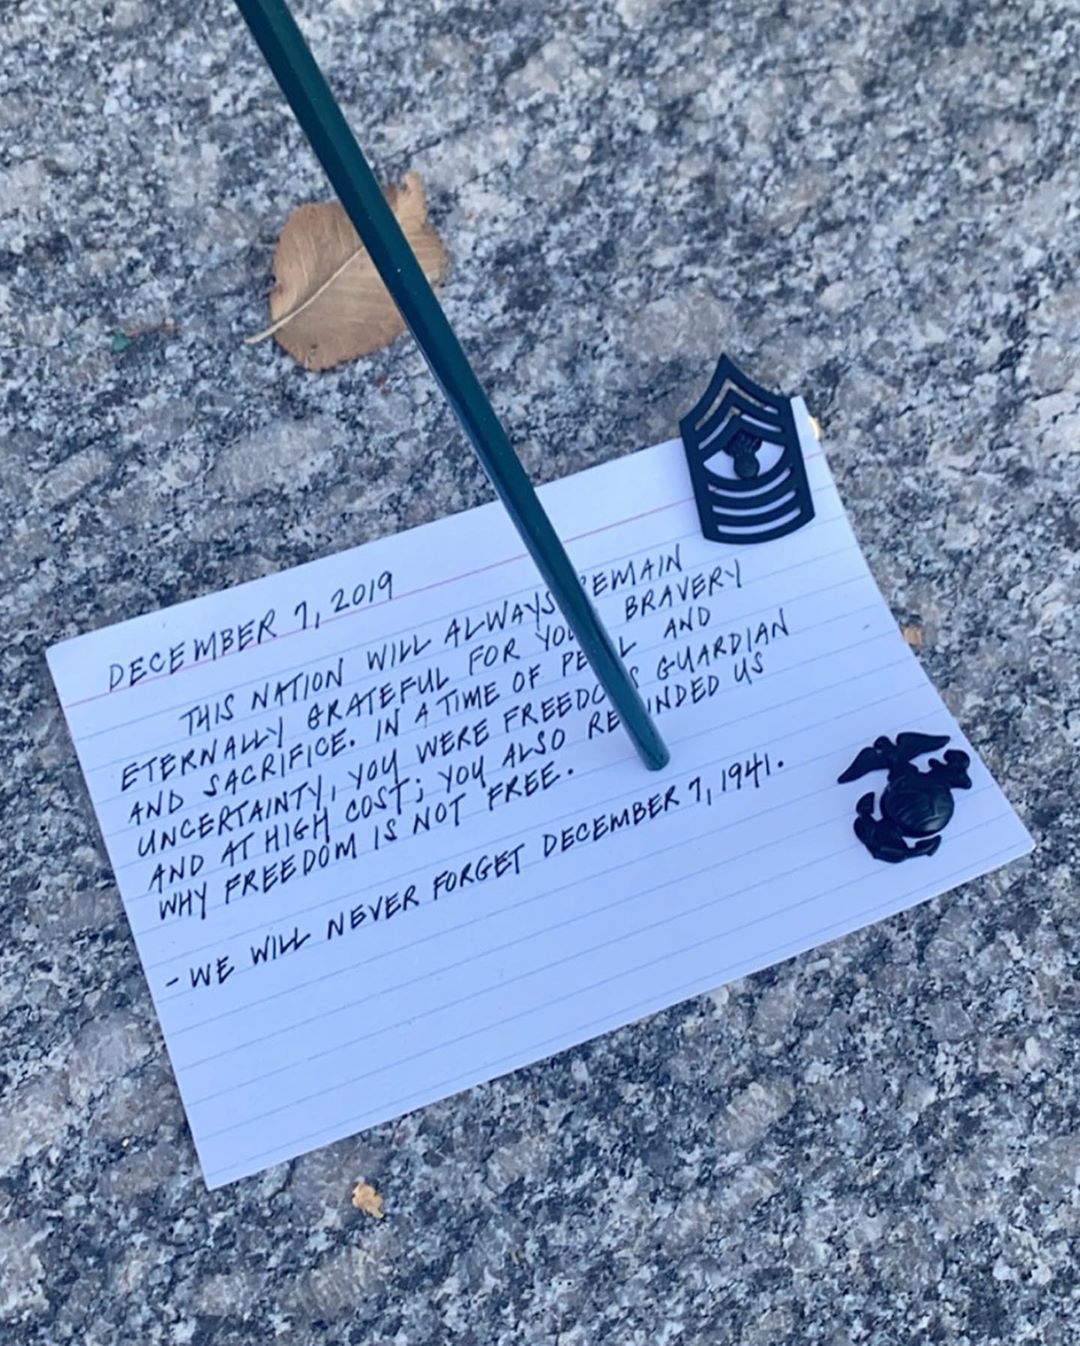 DECEMBER 7, 2019
THIS NATION WILL ALWAYS REMAIN
ETERNALLY GRATEFUL FOR YOUR BRAVERY
AND SACRIFICE. IN A TIME OF PERIL AND
UNCERTAINTY, YOU WERE FREEDOM'S GUARDIAN
AND AT HIGH COST; YOU ALSO REMINDED US
WHY FREEDOM IS NOT FREE.
- WE WILL NEVER FORGET DECEMBER 7, 1941.